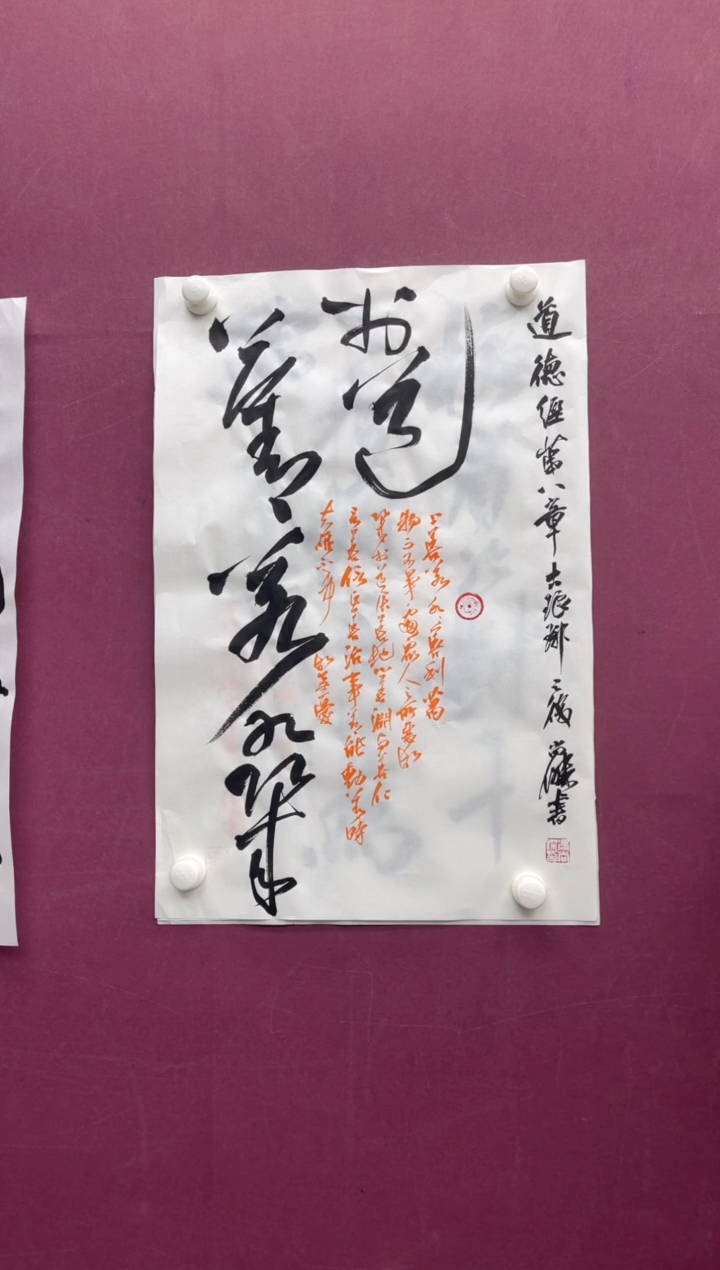 道德經第八章 古琅邪 書
於道
善若水幾
上善若水水善利萬
物而不爭處眾人之所惡故
幾於道居善地心善淵與善仁
言善信正善治事善能動善時
夫唯不爭故無